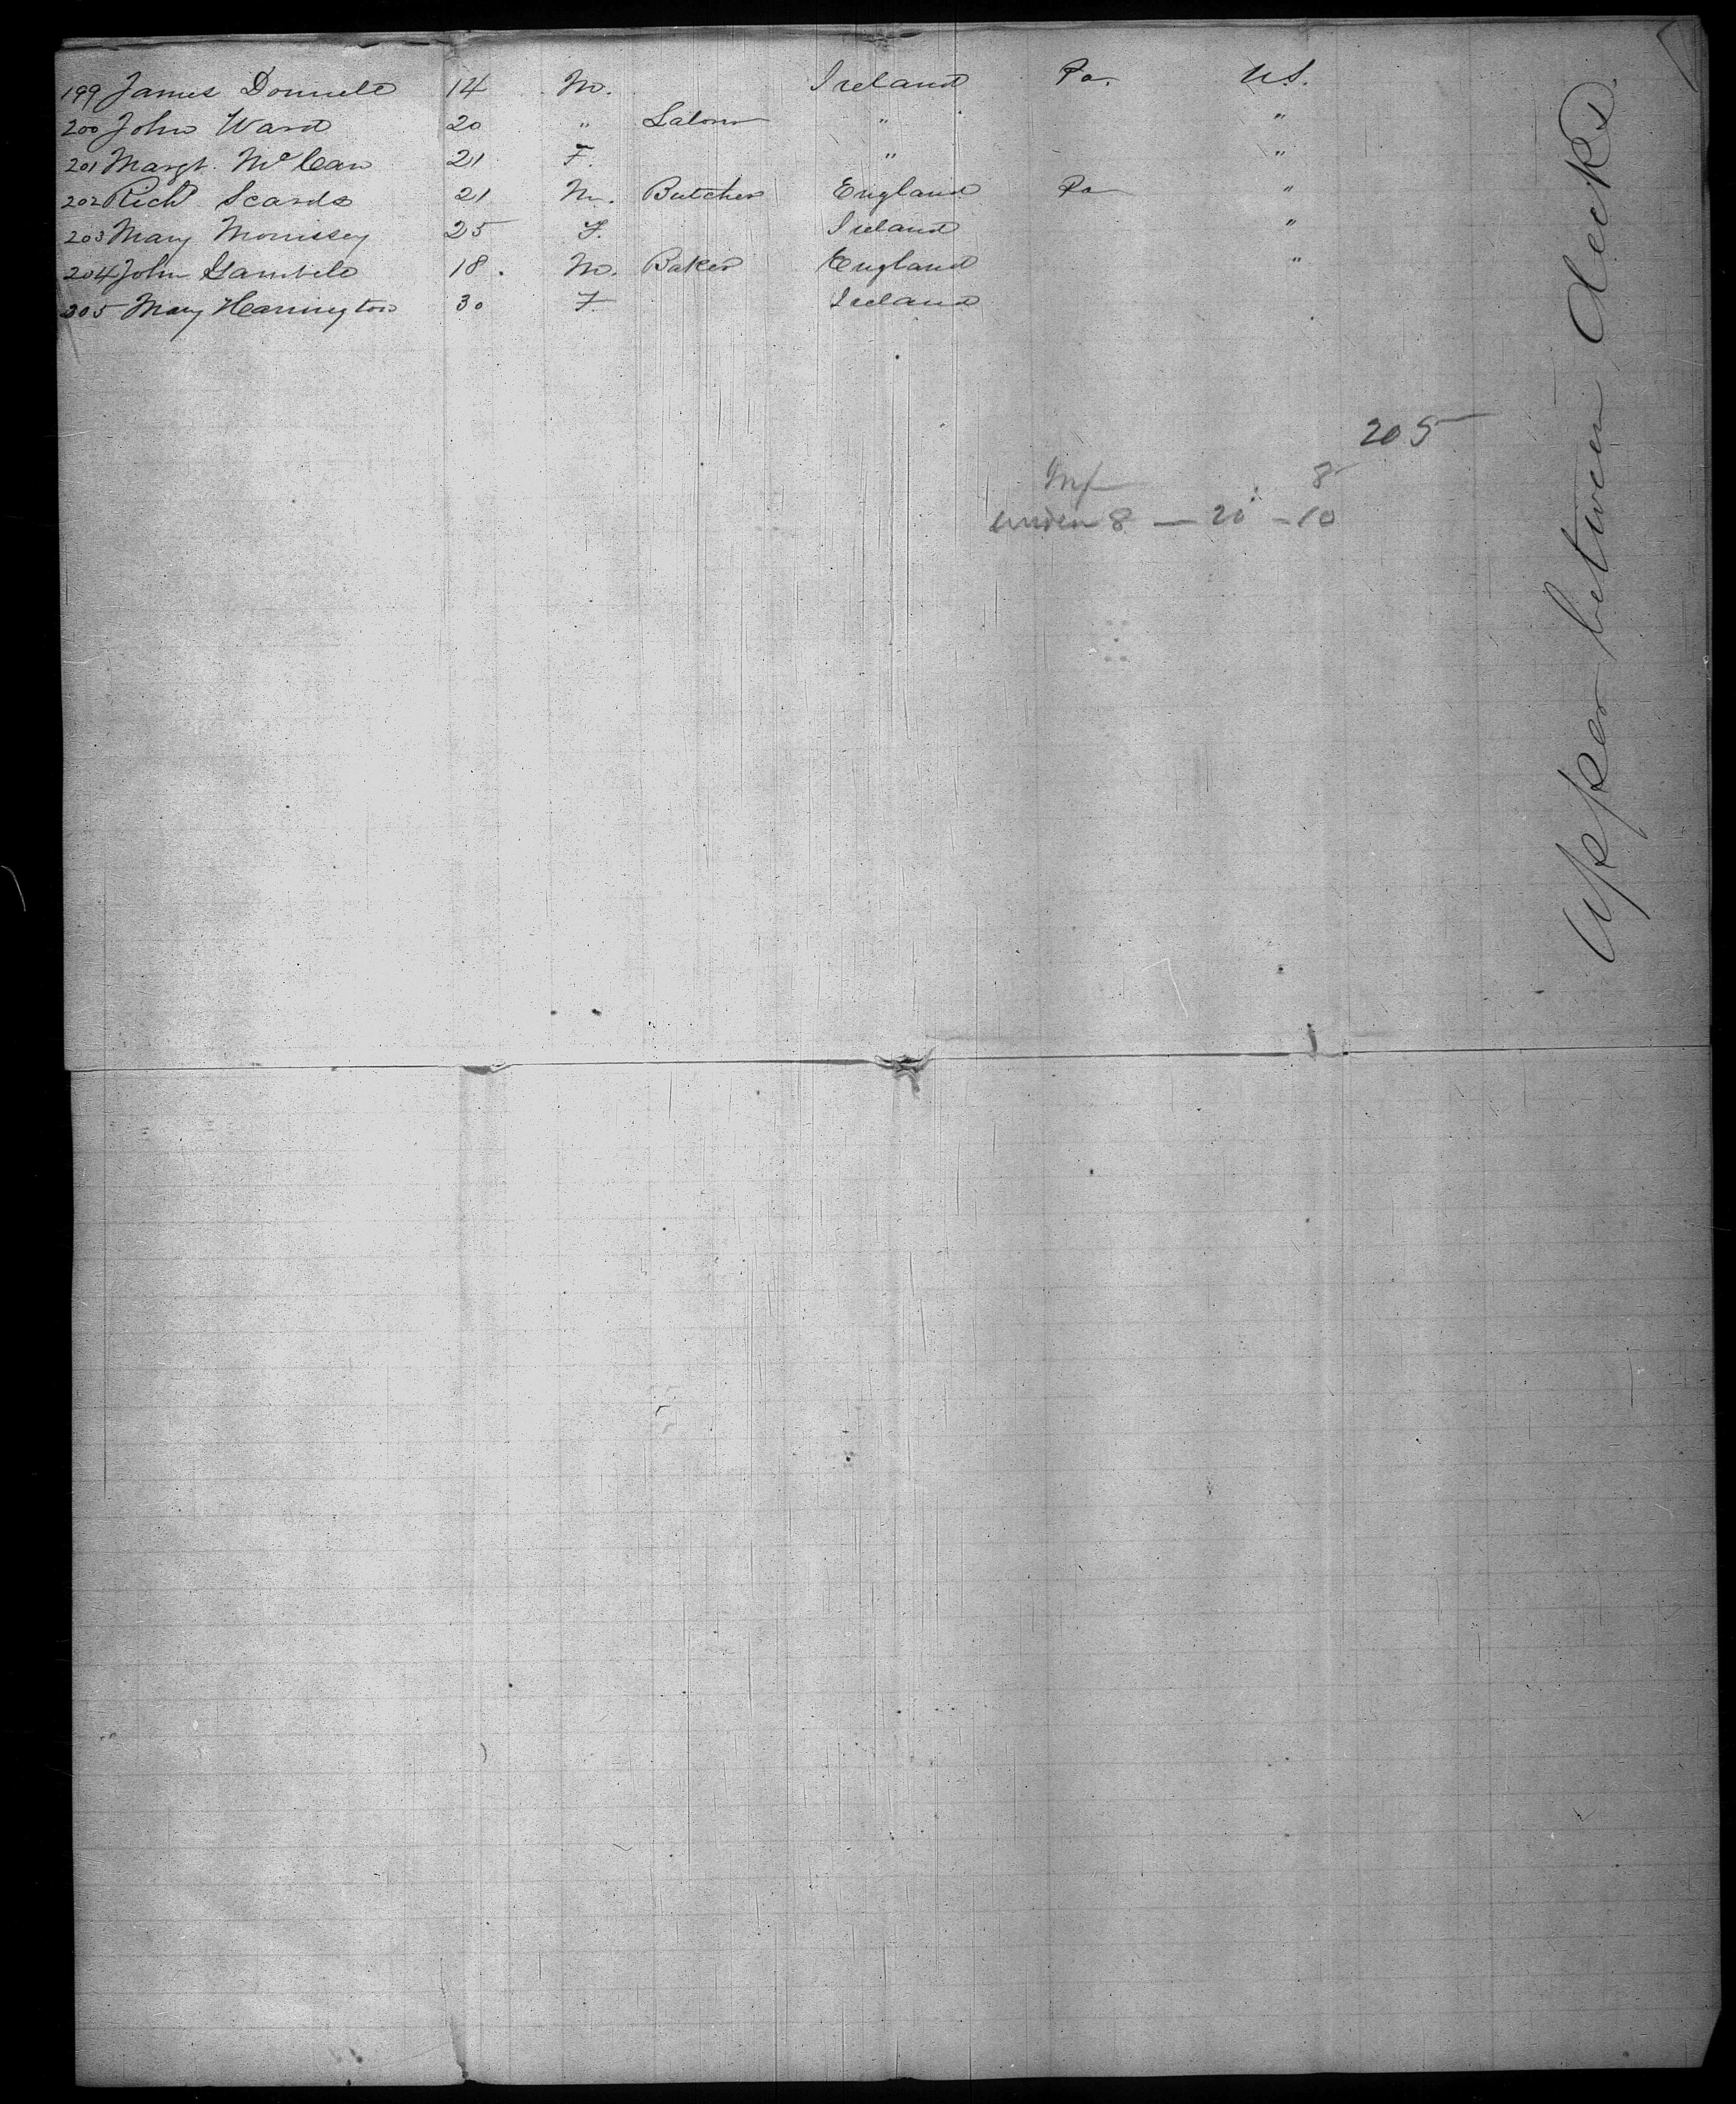 199 James Donnell 14 M. Ireland Pa. U.S.
200 John Ward 20 " Labour " "
201 Margt. McCan 21 F. " "
202 Richd Scards 21 M. Butcher England Pa "
203 Mary Morrissey 25 F. Ireland "
204 John Gambell 18. M. Baker England "
205 Mary Harrington 30 F Ireland
205
Inf 8
under 8 — 20 - 10
Upper between decks.